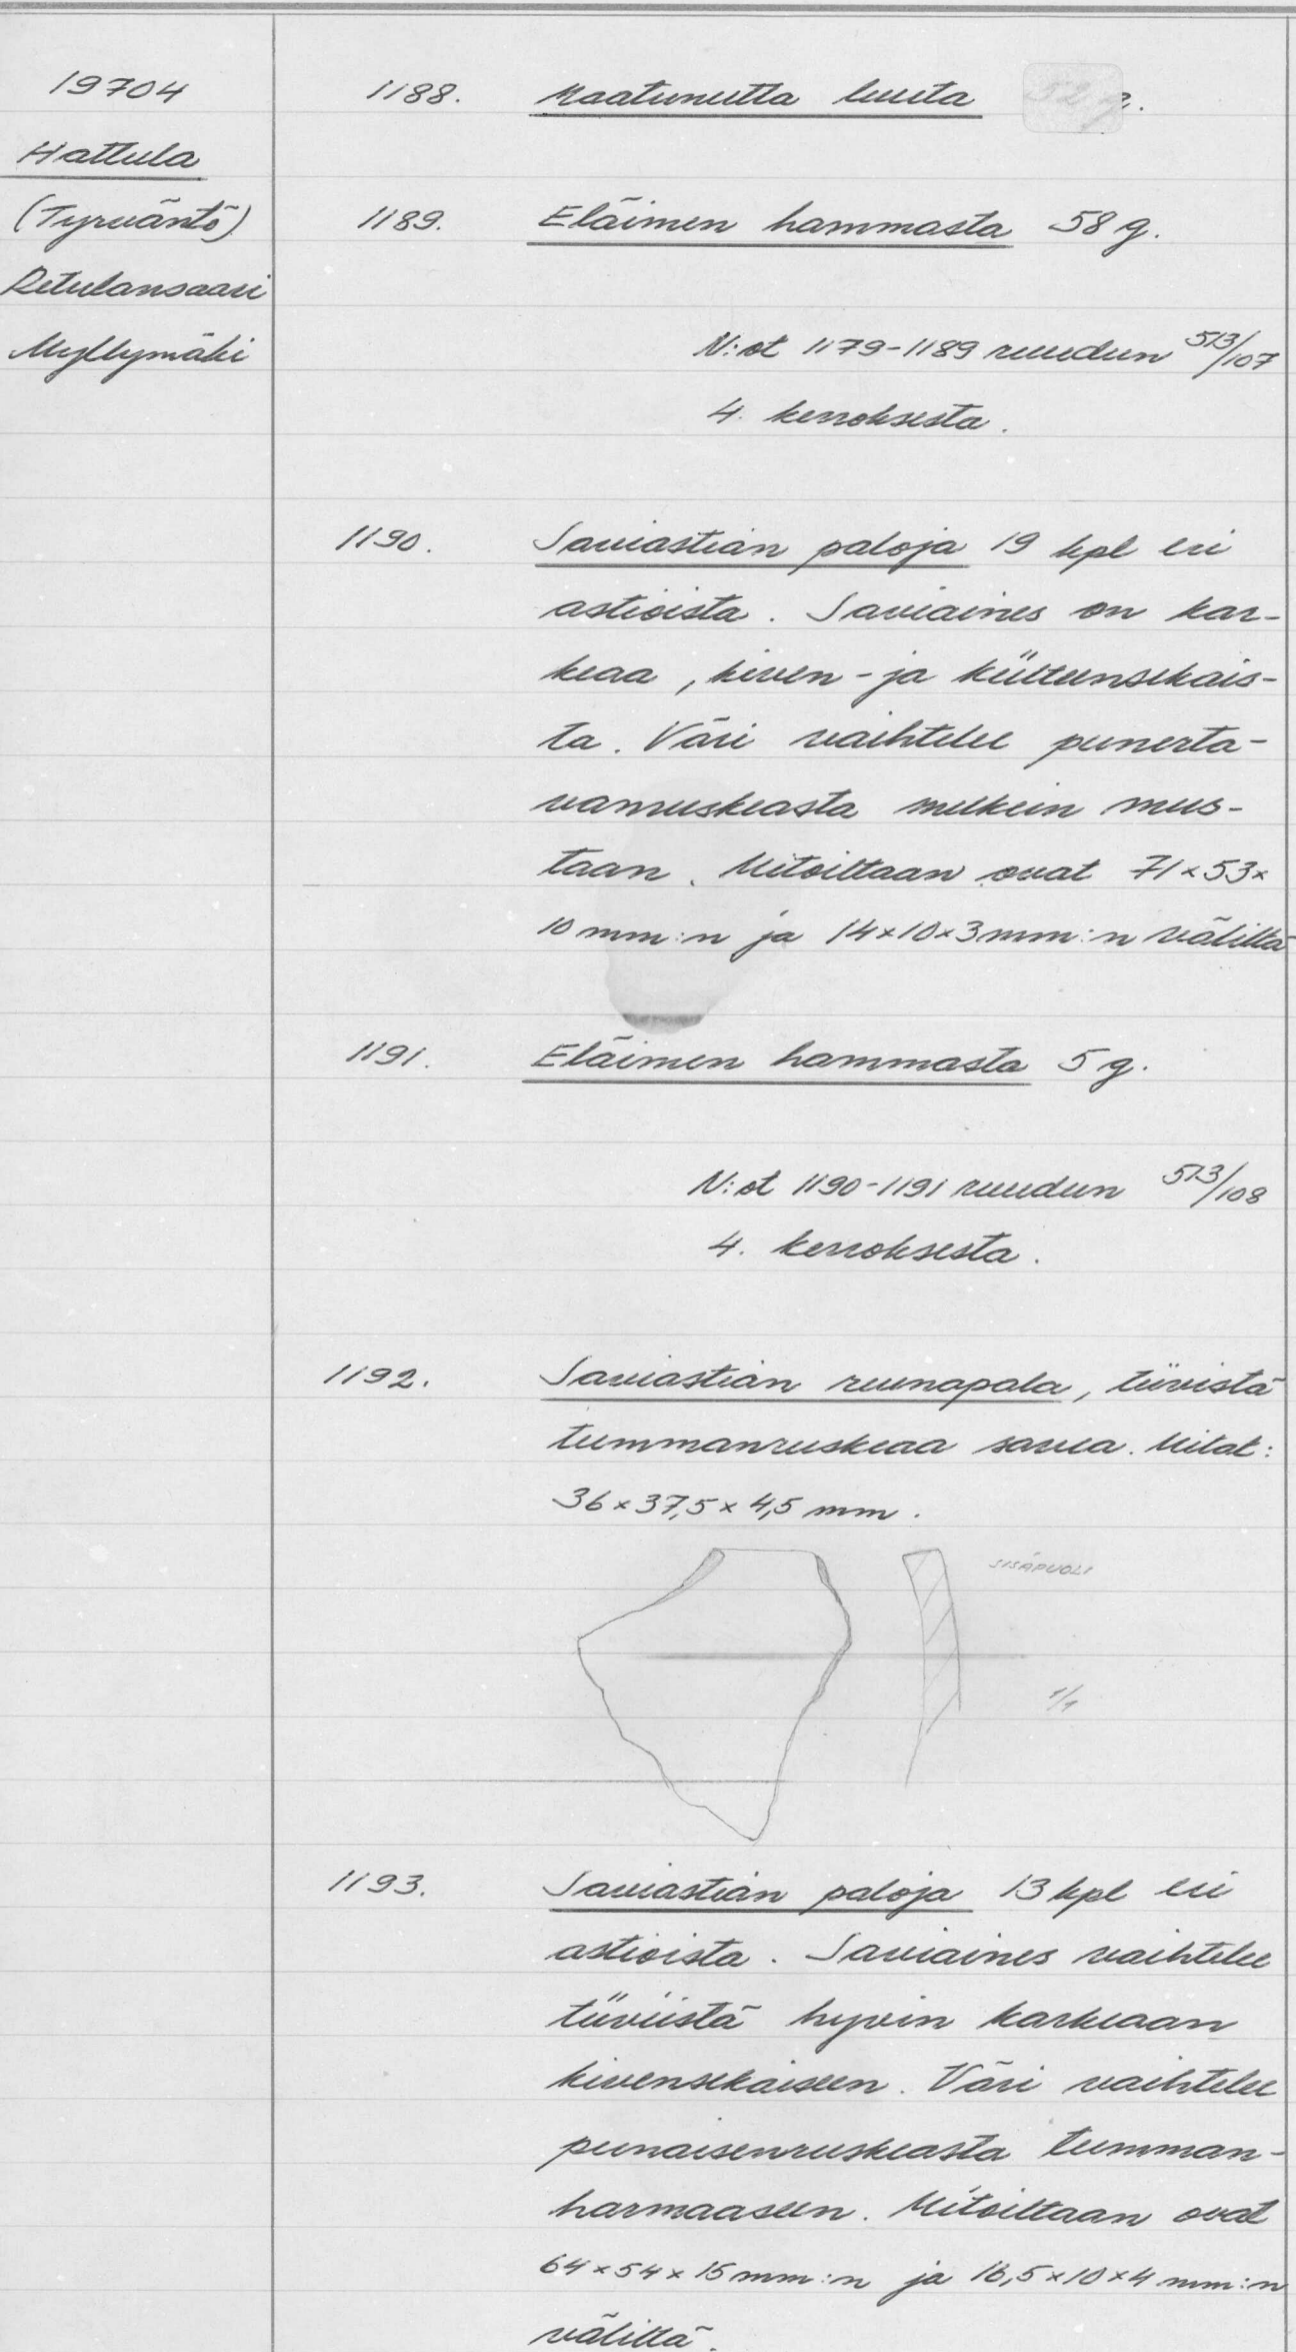 19704
Hattula
(Tyrväntö)
Retulansaari
Myllymäki
1188. Maatunutta luuta 52 g.
1189. Eläimen hammasta 58 g.
N:ot 1179-1189 ruudun 513/107
4. kerroksesta.
1190. Saviastian paloja 19 kpl eri
astioista. Saviaines on kar-
keaa, kiven- ja kiilteensekais-
ta. Väri vaihtelee punerta-
vanruskeasta melkein mus-
taan. Mitoiltaan ovat 71×53×
10 mm:n ja 14×10×3 mm:n väliltä
1191. Eläimen hammasta 5 g.
N:ot 1190-1191 ruudun 513/108
4. kerroksesta.
1192. Saviastian reunapala, tiivistä
tummanruskeaa savea. Mitat:
36×37,5×4,5 mm.
SISÄPUOLI
1/1
1193. Saviastian paloja 13 kpl eri
astioista. Saviaines vaihtelee
tiiviistä hyvin karkeaan
kivensekaiseen. Väri vaihtelee
punaisenruskeasta tumman-
harmaaseen. Mitoiltaan ovat
64×54×15 mm:n ja 16,5×10×4 mm:n
väliltä.